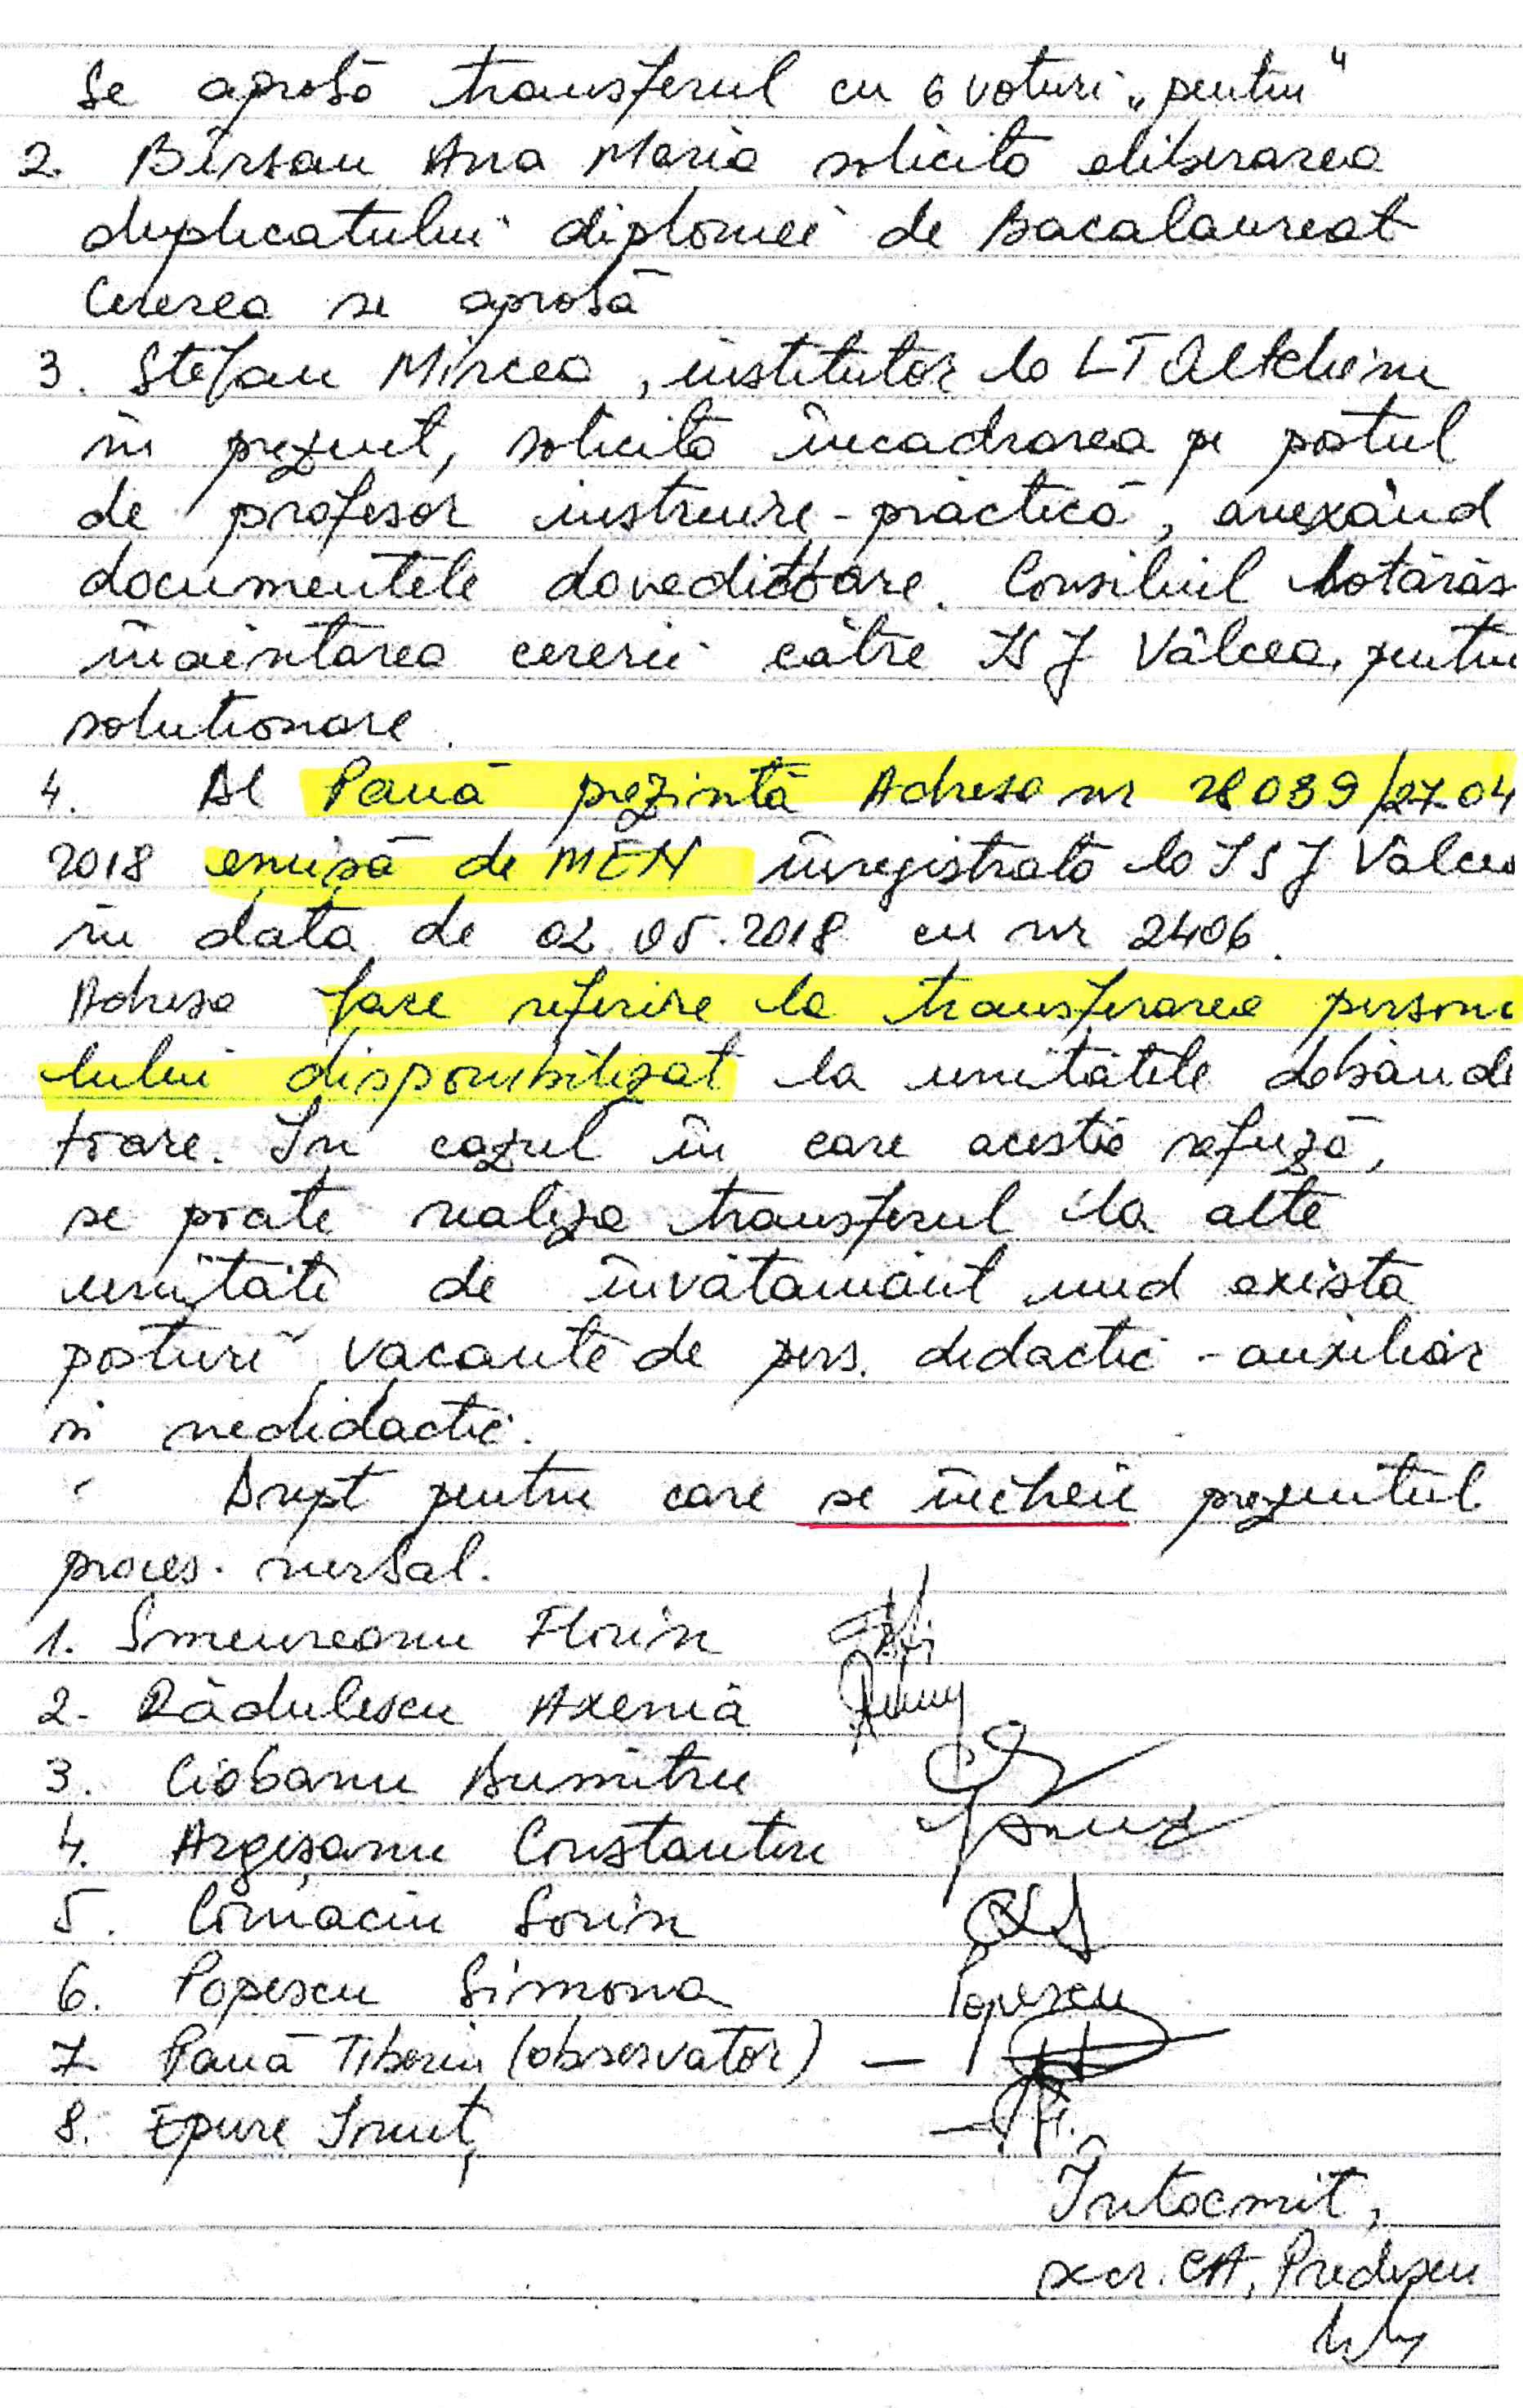 Se aprobă transferul cu 6 voturi „pentru"
2. Bîrsan Ana Maria solicită eliberarea
duplicatului diplomei de Bacalaureat
Cererea se aprobă
3. Ștefan Mircea, institutor la LT Oltchim
în prezent, solicită încadrarea pe postul
de profesor instruire-practică, anexând
documentele doveditoare. Consiliul hotărăs
înaintarea cererii către ISJ Vâlcea, pentru
soluționare.
4. Dl Pană prezintă Adresa nr 28039/27.04
2018 emisă de MEN înregistrată la ISJ Vâlcea
în data de 02.05.2018 cu nr 2406.
Adresa face referire la transferarea persona
lului disponibilizat la unitățile dobândi
toare. În cazul în care acestia refuză,
se poate realiza transferul la alte
unități de învățământ und există
posturi vacante de pers. didactic-auxiliar
și nedidactic.
Drept pentru care se încheie prezentul
proces-verbal.
1. Smeureanu Florin
2. Rădulescu Axenia
3. Ciobanu Dumitru
4. Argeșanu Constantin
5. Cîrnaciu Sorin
6. Popescu Simona Popescu
7 Pană Tiberiu (observator) —
8. Epure Ionuț —
Întocmit,
secr. CA, Predescu